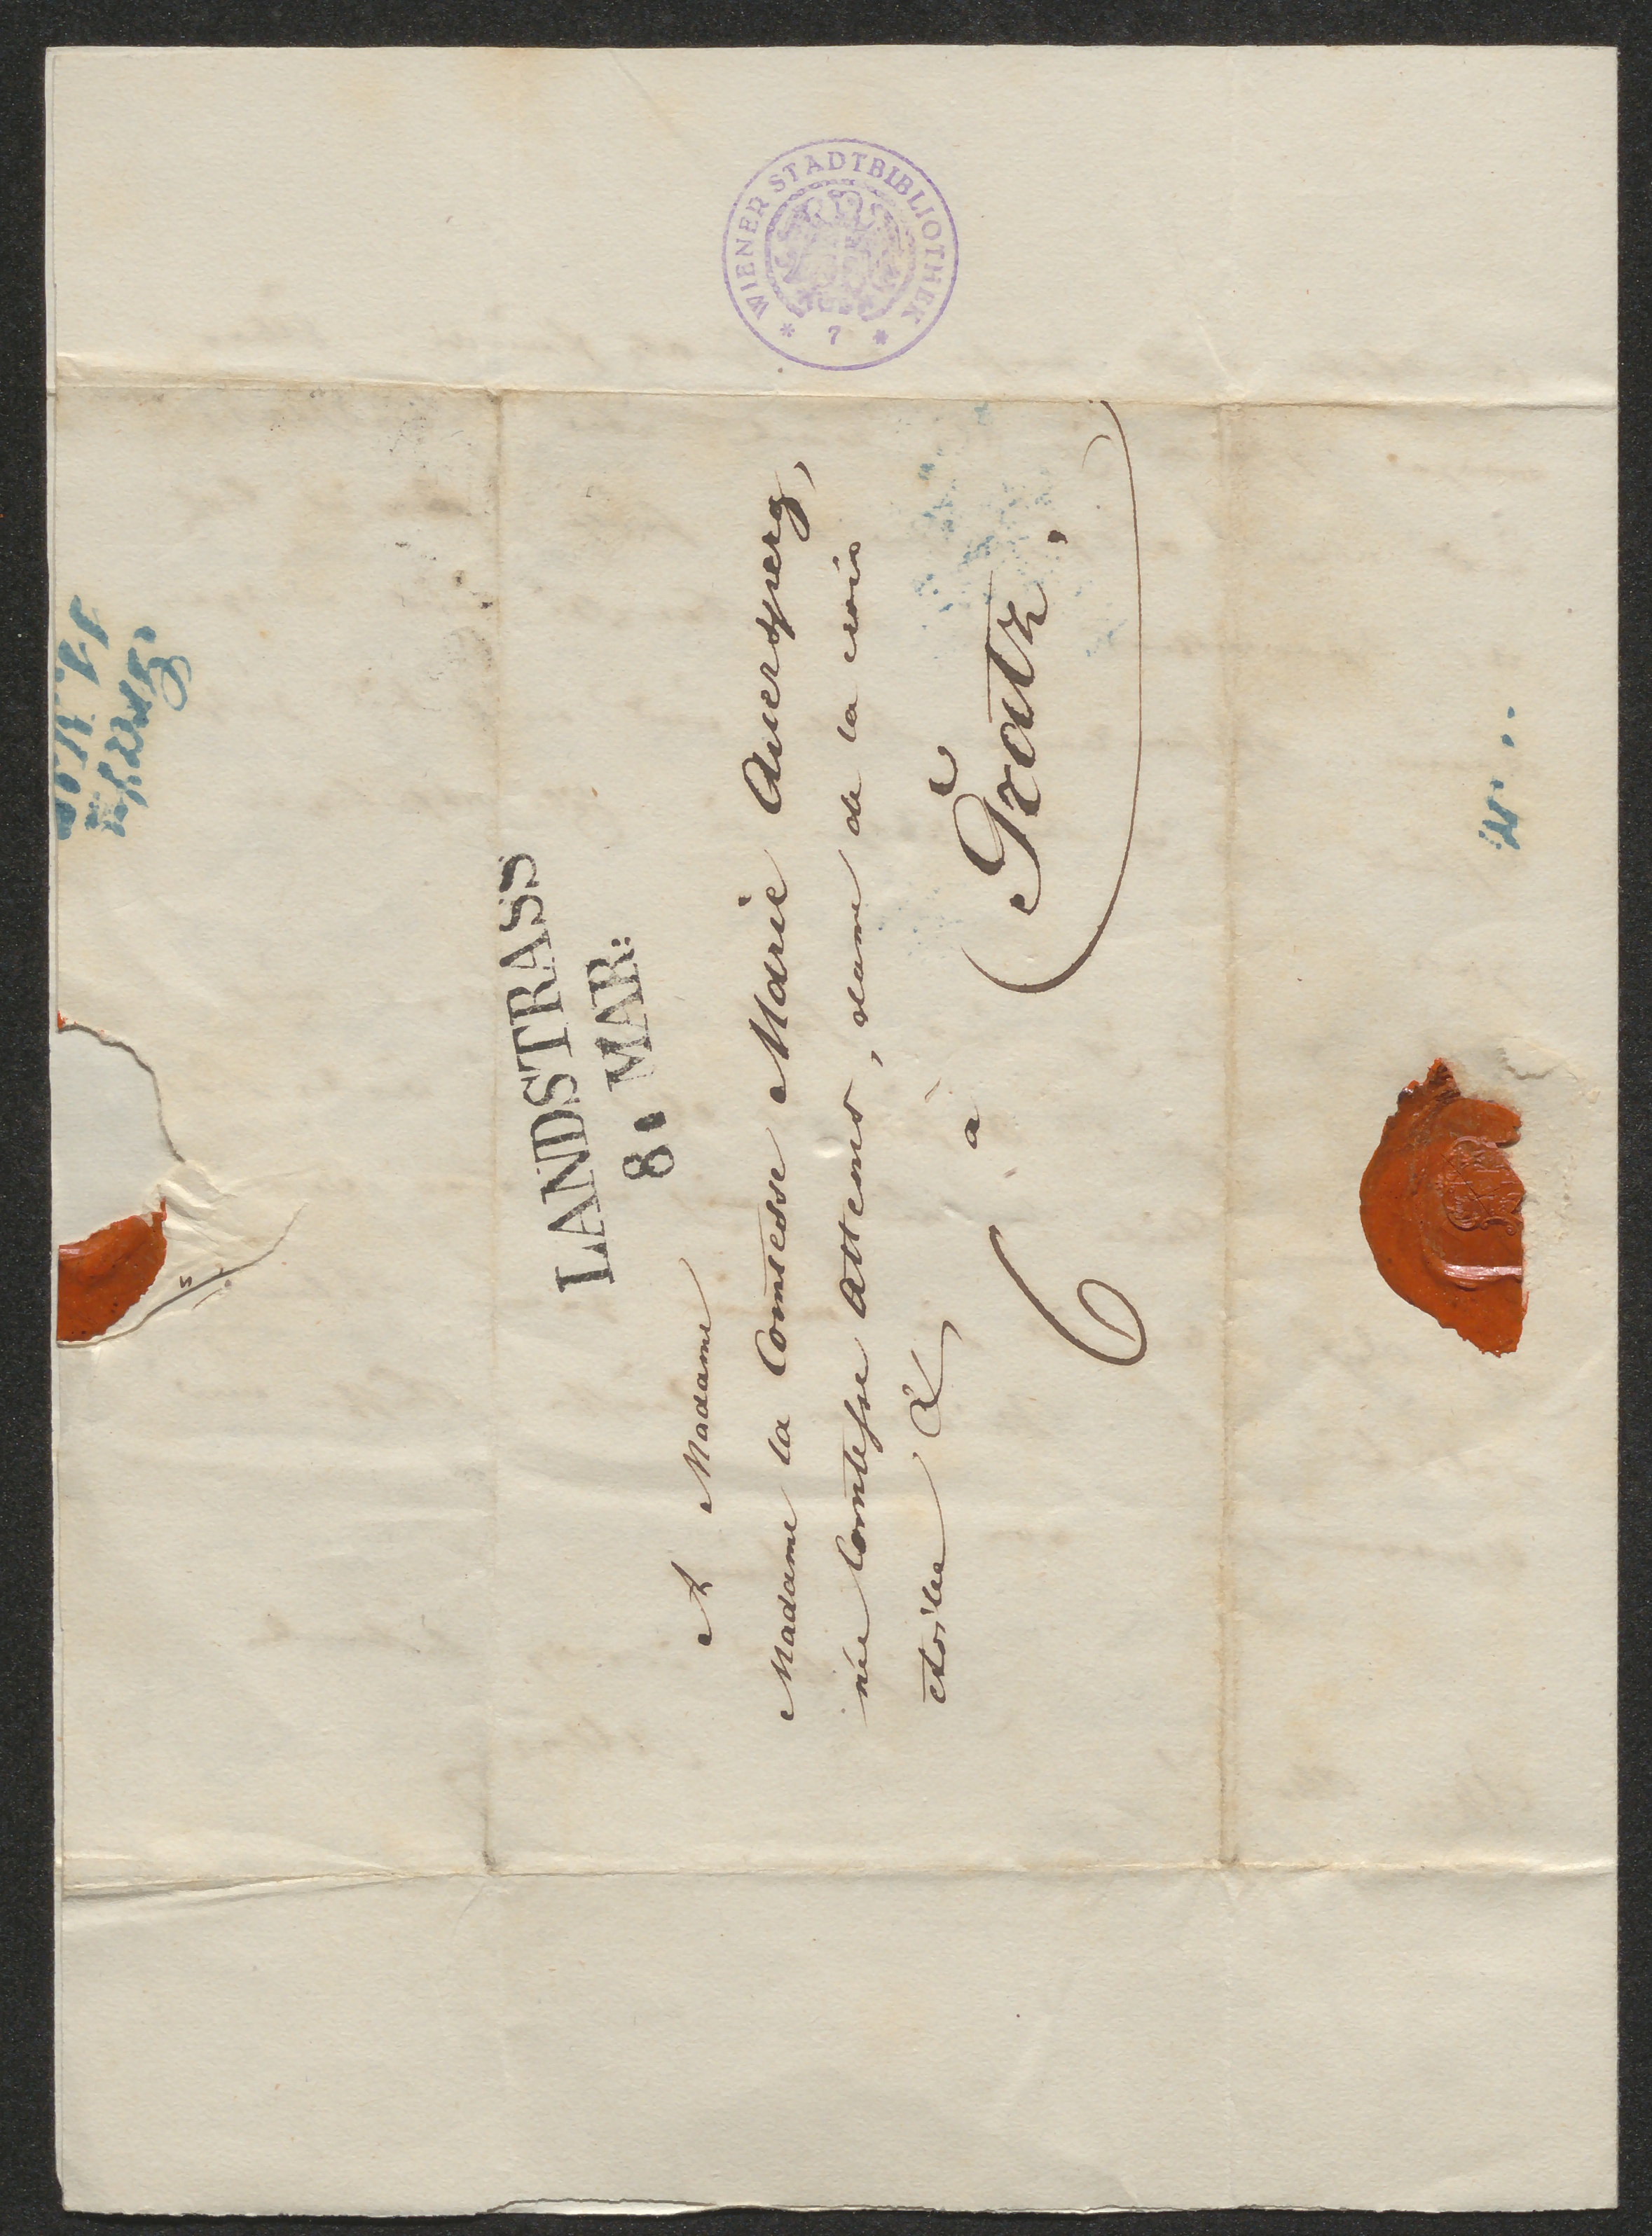 WIENER STADTBIBLIOTHEK
* 7 *
LANDSTRASS
8. MAR:
A Madame
Madame la Comtesse Marie Auersperg,
née Comtesse Attems, dame de la croix
étoilée &
à Gratz.
6